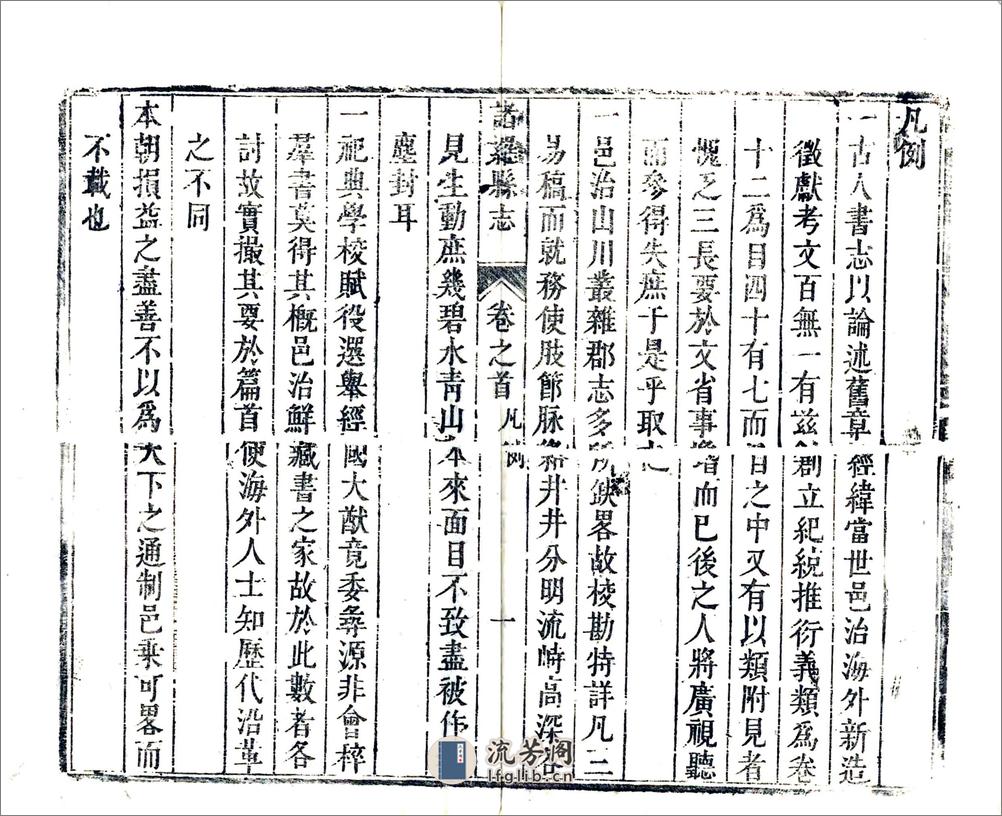 凡例
一古人書志以論述舊章經緯當世邑治海外新造
徵獻考文百無一有茲創立紀統推衍義類為卷
十二為目四十有七而目之中又有以類附見者
愧乏三長要於文省事增而已後之人將廣視聽
而參得失庶于是乎取之
一邑治山川叢雜郡志多所缺畧故校勘特詳凡三
易稿而就務使肢節脉絡井井分明流峙高深
諸羅縣志 卷之首 凡例 一
見生動庶幾碧水青山本來面目不致盡被作
塵封耳
一祀典學校賦役選舉經國大猷竟委彝源非會稡
羣書莫得其概邑治鮮藏書之家故於此數者各
討故實撮其要於篇首使海外人士知歷代沿革
之不同
本朝損益之盡善不以為天下之通制邑乘可畧而
不載也
流芳阁
lfglib.cn